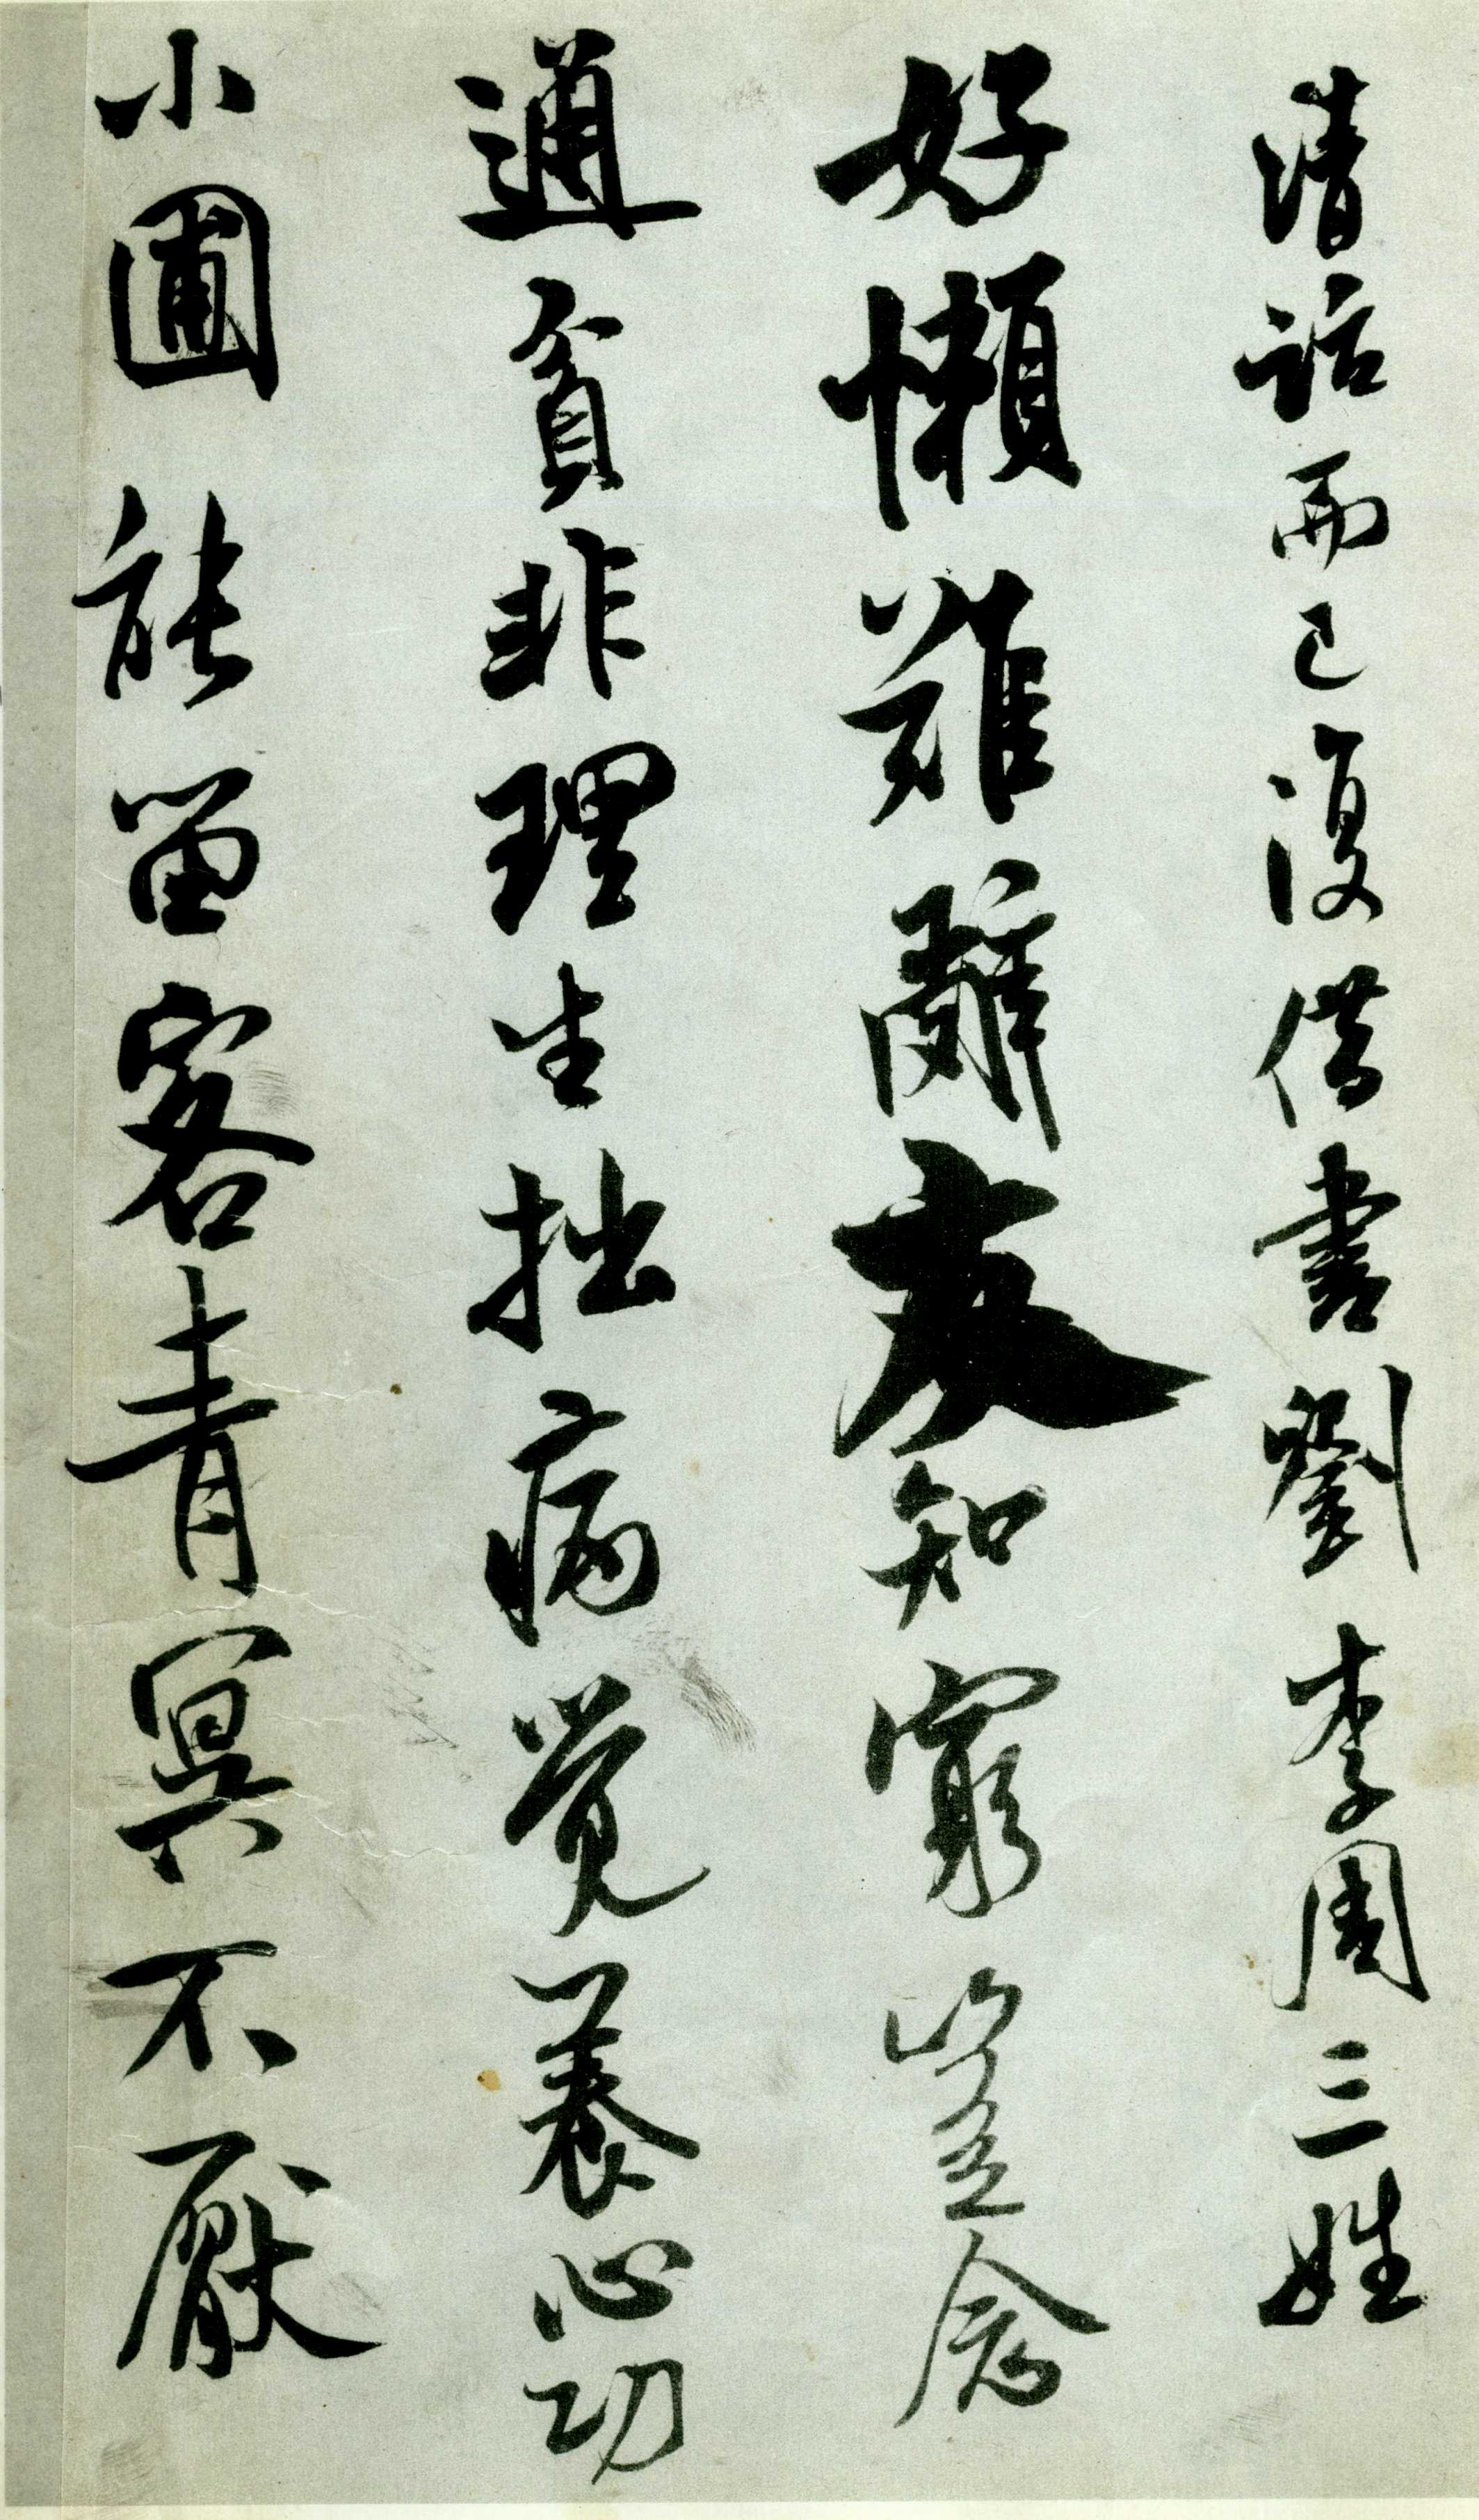 清話而已復借書劉李周三姓
好懶難辭友知窮豈念
通貧非理生拙病覺養心功
小圃能留客青冥不厭